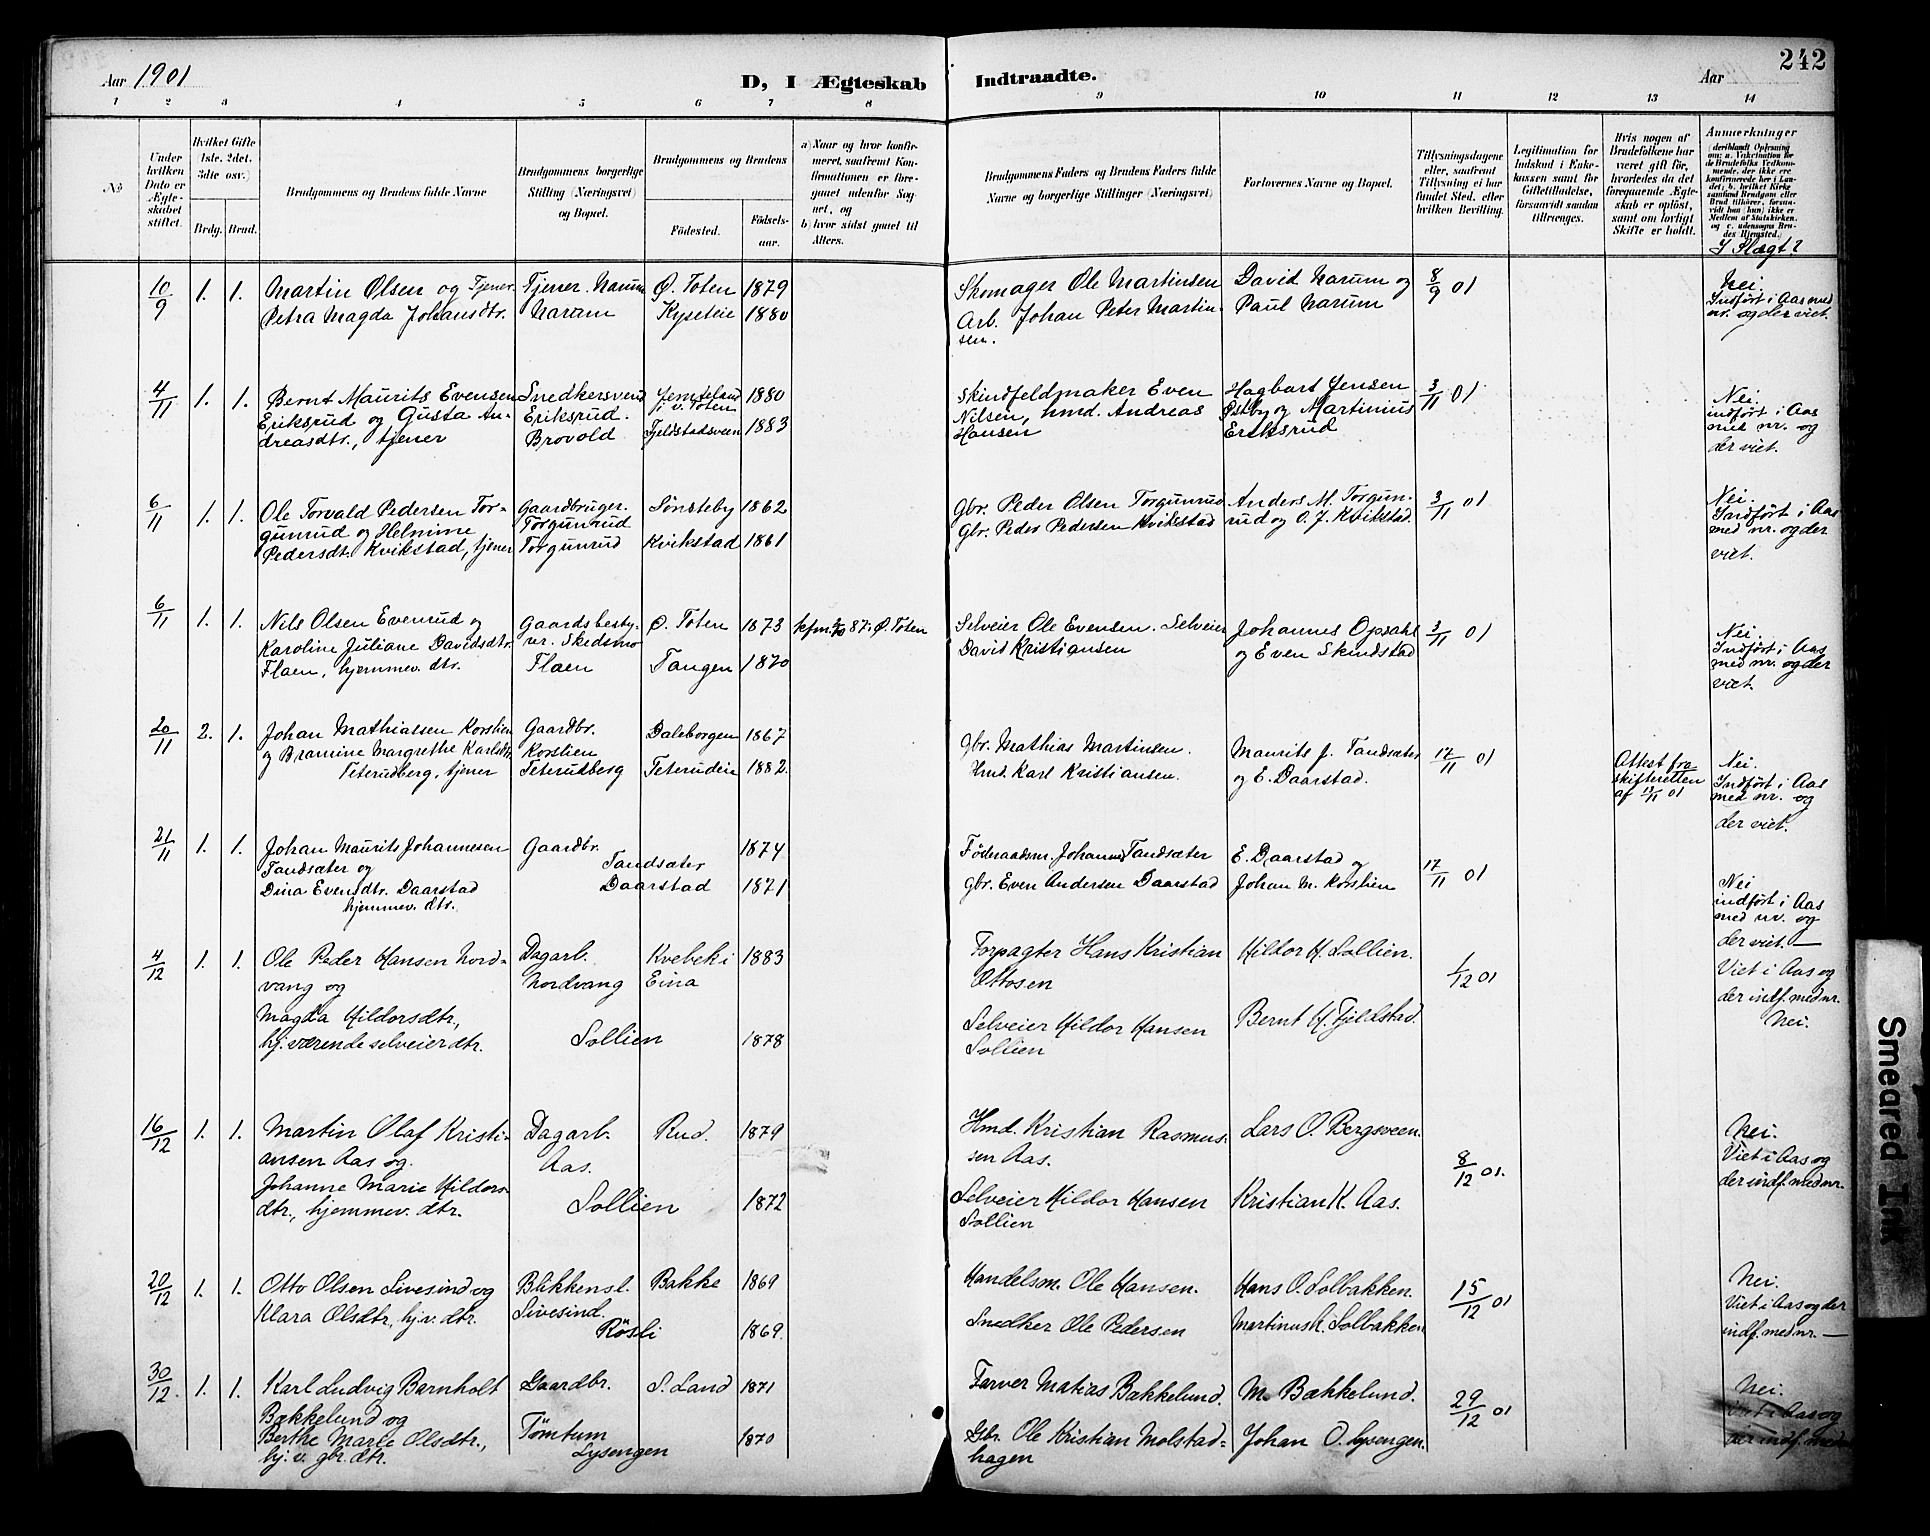 Aar 1901
D, I Ægteskab Indtraadte.
Aar
242
1 2 3 4 5 6 7 8 9 10 11 12 13 14
No
Under hvilken Dato er Ægteskabet stiftet.
Hvilket Gifte 1ste. 2det. 3die osv.)
Brdg. Brud.
Brudgommens og Brudens fulde Navne
Brudgommens borgerlige Stilling (Næringsvei) og Bopæl.
Brudgommens og Brudens
Födested.
Födsels-aar.
a) Naar og hvor konfirmeret, saafremt Konfirmationen er foregaaet udenfor Sognet, og
b) hvor sidst gaaet til Alters.
Brudgommens Faders og Brudens Faders fulde Navne og borgerlige Stillinger (Næringsvei)
Forlovernes Navne og Bopæl.
Tillysningsdagene eller, saafremt Tillysning ei har fundet Sted, efter hvilken Bevilling.
Legitimation for Indskud i Enkekassen samt for Giftetilladelse, forsaavidt saadan tiltrænges.
Hvis nogen af Brudefolkene har været gift för, hvorledes da det foregaaende Ægteskab er oplöst, samt om lovligt Skifte er holdt.
Anmærkninger
(deriblandt Oplysning om: a. Vakcination for de Brudefolks Vedkommende, der ikke ere konfirmerede her i Landet; b. hvilket Kirkesamfund Brudgom eller Brud tilhörer, forsaavidt han (hun) ikke er Medlem af Statskirken, og c. udensogns Brudes Hjemsted.)
I Slægt?
10/9 1. 1. Martin Olsen og Tjener Tjener Narum Ø. Toten 1879 Skomager Ole Martinsen David Narum og 8/9 01 Nei.
Petra Magda Johansdtr. Narum Kyseteie 1880 Arb. Johan Peter Martin- Paul Narum Indført i Aas med
sen. nr. og der viet.
4/11 1. 1. Bernt Maurits Evensen Snedkersvend Jemteland 1880 Skindfeldmaker Even Hagbart Jensen 3/11 01 Nei.
Eriksrud og Gusta An- Eriksrud. v. Toten Nilsen, hmd. Andreas Østby og Martinius indført i Aas
dreasdtr., tjener Brovold Fjeldstadsveen 1883 Hansen Eriksrud med nr. og
der viet.
6/11 1. 1. Ole Torvald Pedersen Tor- Gaardbruger. Sønsteby 1862 Gbr. Peder Olsen Torgunrud Anders M. Torgun- 3/11 01 Nei.
gunrud og Helmine Torgunrud Gbr. Peder Pedersen Kvikstad rud og O. J. Kvikstad. Indført i Aas
Pedersdt. Kvikstad, tjener Torgunrud Kvikstad 1861 med nr. og der
viet.
6/11 1. 1. Nils Olsen Evenrud og Gaardsbesty- Ø. Toten 1873 kfm. 87. Ø. Toten Selveier Ole Evensen. Selveier Johannes Opsahl 3/11 01 Nei
Karoline Juliane Davidsdtr. rer. Skedsmo David Kristiansen og Even Skindstad Indført i Aas
Flaen, hjemmev. dtr. Flaen Tangen 1870 med nr. og der
viet.
20/11 2. 1. Johan Mathiasen Korslien Gaardbr. Dalsborgen 1867 gbr. Mathias Martinsen. Maurits J. Tandsæter 17/11 01 Attest fra Nei.
og Bramine Margrethe Karlsdtr. Korslien Hmd. Karl Kristiansen. og E. Daarstad. skifteretten Indført i Aas
Teterudberg, tjener Teterudberg Teterudeie 1882. af 13/11 01 med nr. og
der viet.
21/11 1. 1. Johan Maurits Johannesen Gaardbr. 1874 Føderaadsm. Johannes Tandsæter E. Daarstad og 17/11 01 Nei
Tandsæter og Tandsæter gbr. Even Andersen Daarstad Johan M. Korslien indført i Aas
Dina Evensdtr. Daarstad Daarstad 1871 med nr. og
hjemmev. dtr. der viet. —
4/12 1. 1. Ole Peder Hansen Nord- Dagarb. Kvebek i 1883 Forpagter Hans Kristian Hildor H. Sollien. 1/12 01 Viet i Aas og
vang og Nordvang Eina Ottosen der indf. med nr.
Magda Hildorsdtr., Selveier Hildor Hansen Bernt H. Fjeldstad. Nei.
hj. værende selveier dtr. Sollien 1878 Sollien
16/12 1. 1. Martin Olaf Kristi- Dagarb. Rud. 1879 Hmd. Kristian Rasmus- Lars O. Bergsveen. 8/12 01. Nei.
ansen Aas og. Aas. sen Aas. Viet i Aas og
Johanne Marie Hildors- Selveier Hildor Hansen Kristian K. Aas. der indf. med nr.
dtr., hjemmev. dtr. Sollien 1872 Sollien
20/12 1. 1. Otto Olsen Sivesind og Blikkensl. Bakke 1869 Handelsm. Ole Hansen. Hans O. Solbakken. 15/12 01 Nei.
Klara Olsdtr, hj. v. dtr. Sivesind. Viet i Aas og der
Røsli 1869. Snedker Ole Pedersen Martinus H. Solbakken indf. med nr. —
30/12. 1. 1. Karl Ludvig Barnholt Gaardbr. S. Land 1871 Farver Matias Bakkelund. M. Bækkelund. 29/12 01 Nei.
Bækkelund og Viet i Aas og
Berthe Marie Olsdtr., Tömtum 1870 Gbr. Ole Kristian Molstad- Johan O. Lysengen. der indf. med nr.
hj. v. gbr. dtr. Lysengen hagen
Smeared Ink